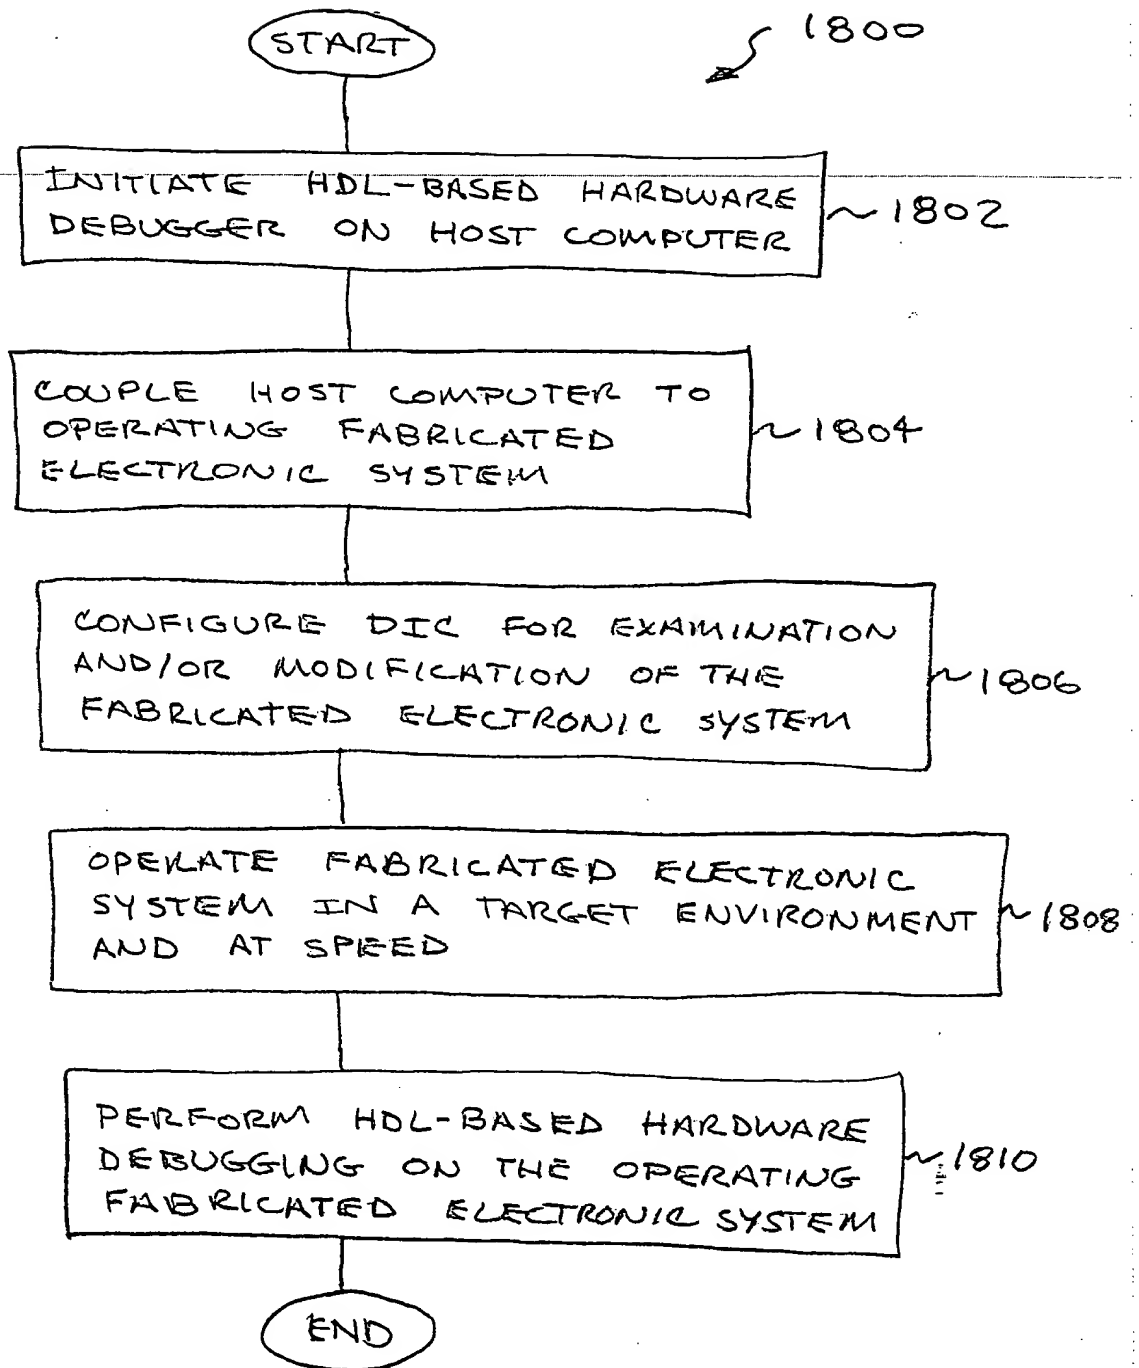 START
1800
INITIATE HDL-BASED HARDWARE
DEBUGGER ON HOST COMPUTER
1802
COUPLE HOST COMPUTER TO
OPERATING FABRICATED
ELECTRONIC SYSTEM
1804
CONFIGURE DIC FOR EXAMINATION
AND/OR MODIFICATION OF THE
FABRICATED ELECTRONIC SYSTEM
1806
OPERATE FABRICATED ELECTRONIC
SYSTEM IN A TARGET ENVIRONMENT
AND AT SPEED
1808
PERFORM HDL-BASED HARDWARE
DEBUGGING ON THE OPERATING
FABRICATED ELECTRONIC SYSTEM
1810
END